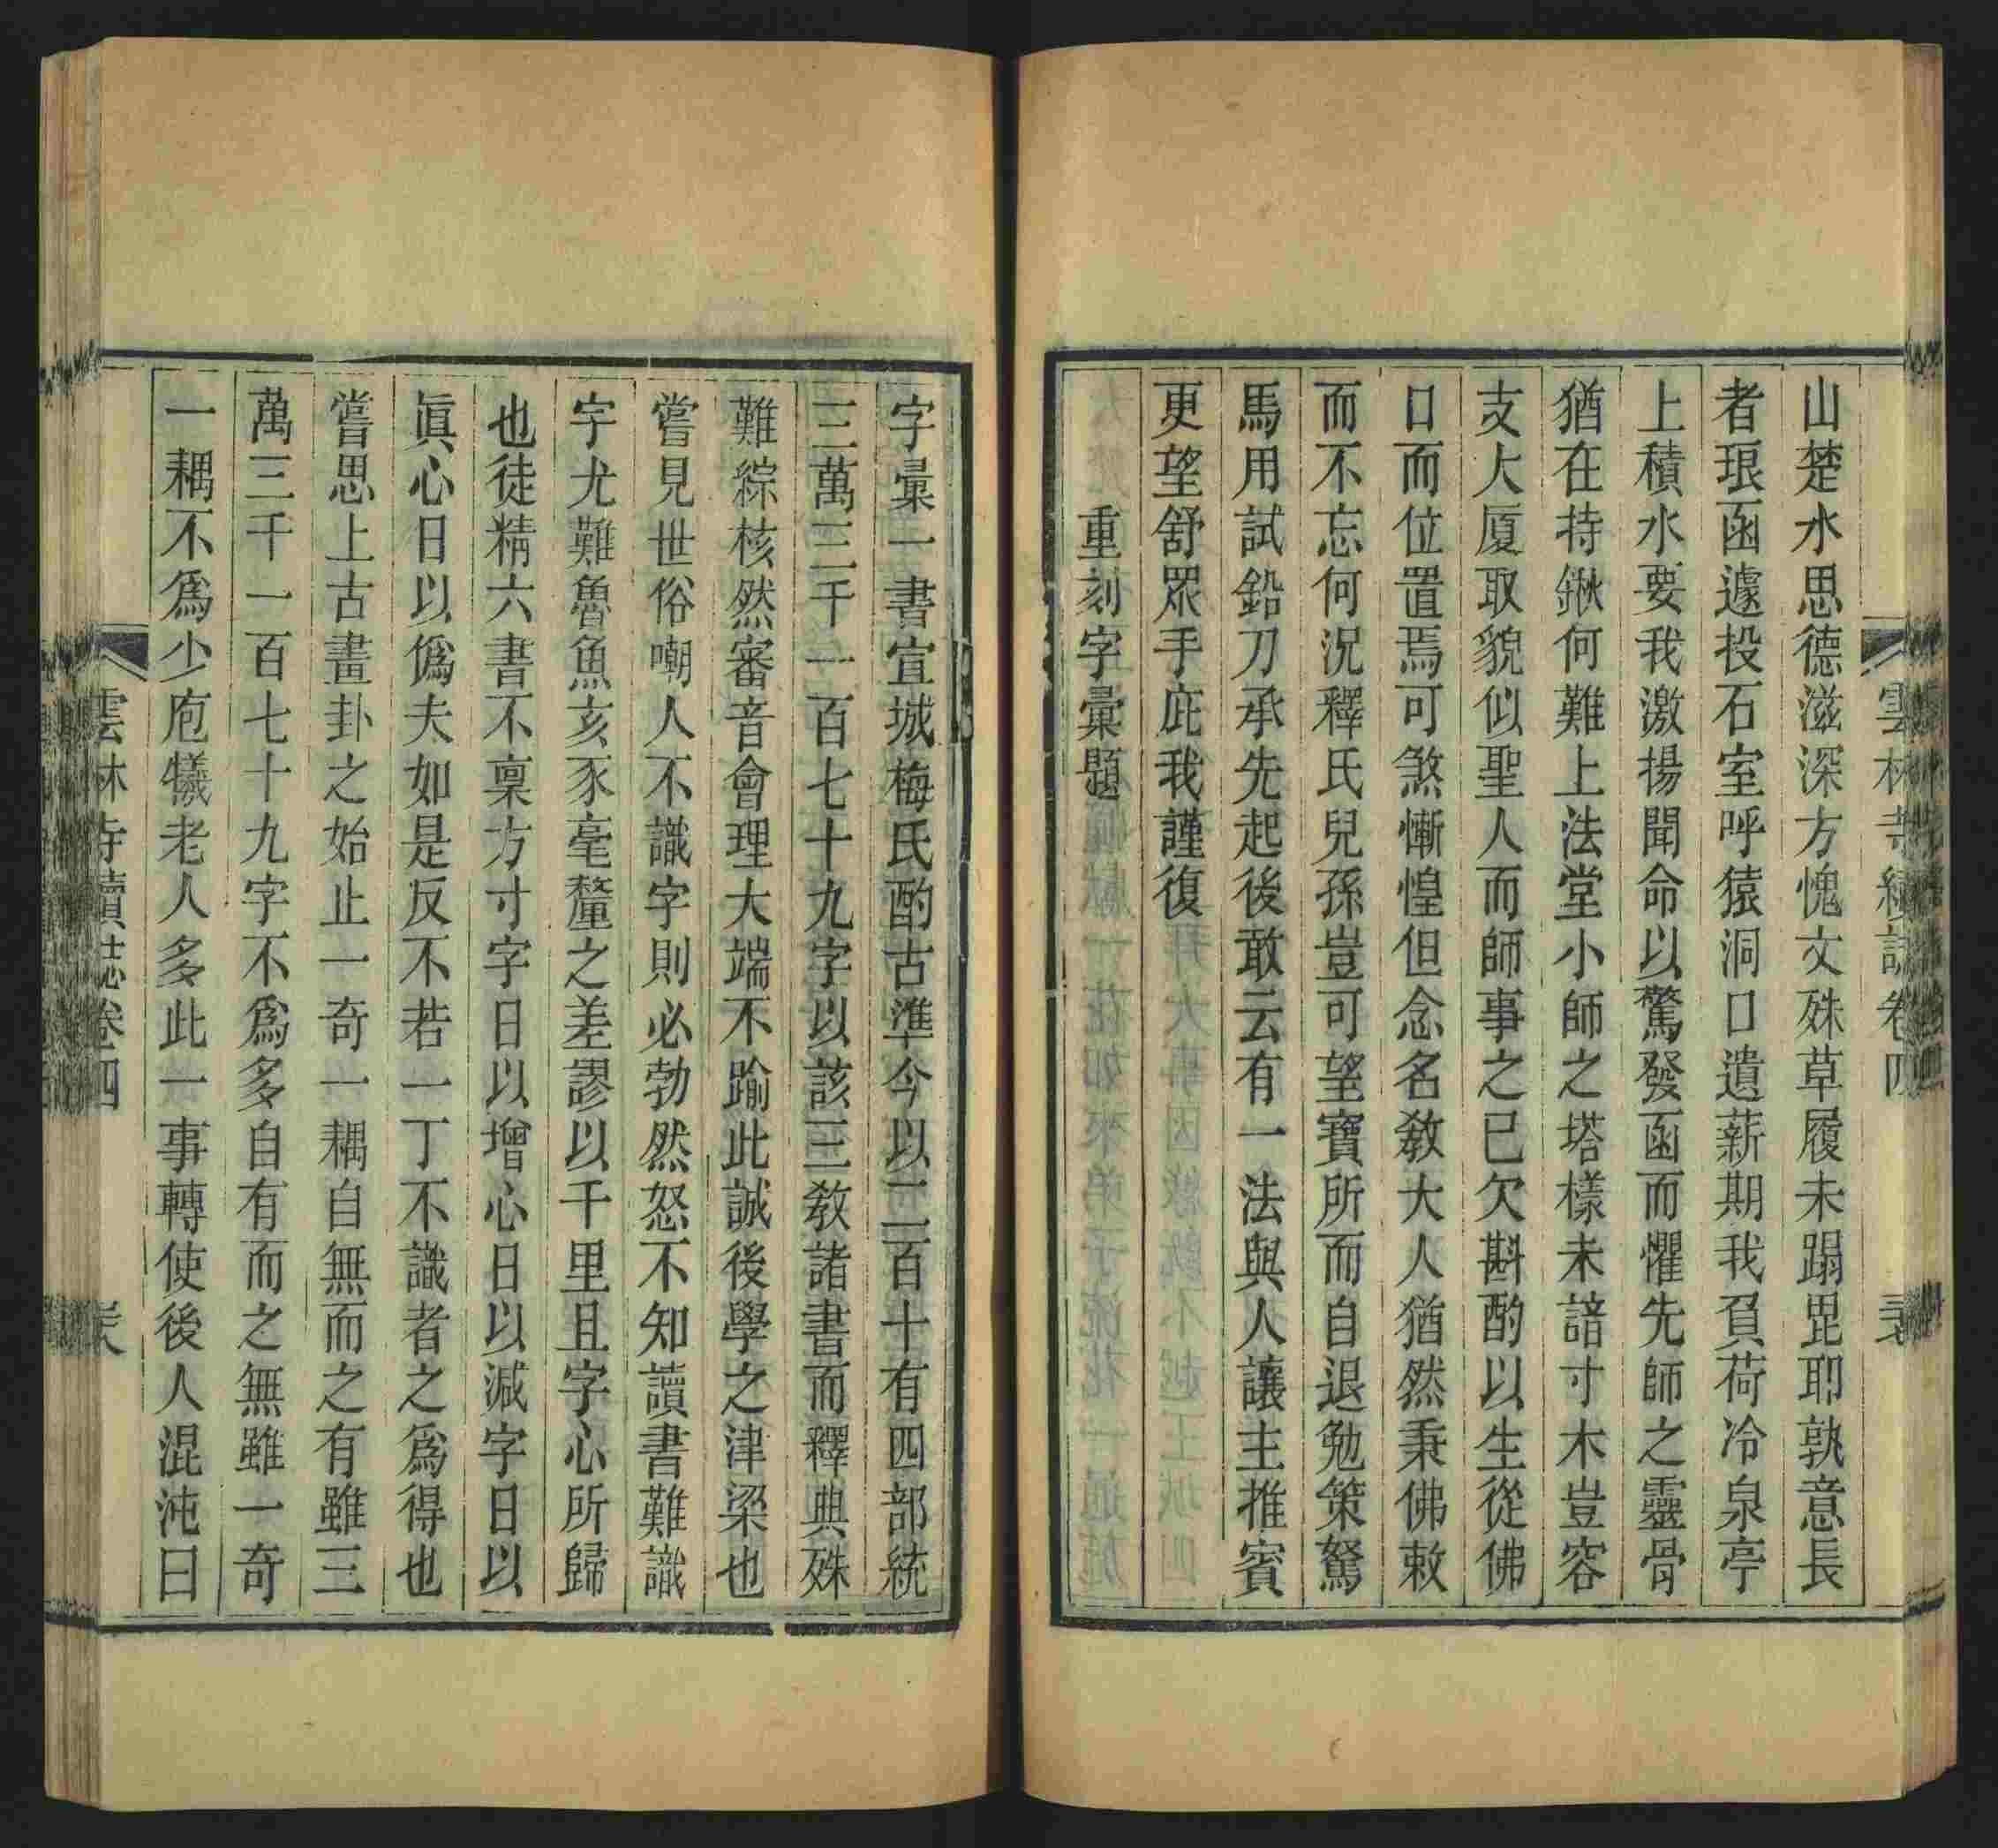 雲林寺續誌卷四
山楚水思德滋深方愧文殊草履未蹋毘耶孰意長
者琅函遽投石室呼猿洞口遺薪期我負荷冷泉亭
上積水要我激揚聞命以驚發函而懼先師之靈骨
猶在持鍬何難上法堂小師之塔樣未諳寸木豈容
支大厦取貌似聖人而師事之已欠斟酌以生從佛
口而位置焉可煞慚惶但念名教大人猶然秉佛敕
而不忘何況釋氏兒孫豈可望寶所而自退勉策駑
馬用試鉛刀承先起後敢云有一法與人讓主推賓
更望舒眾手庇我謹復
重刻字彙題
字彙一書宣城梅氏酌古準今以二百十有四部統
三萬三千一百七十九字以該三教諸書而釋典殊
難綜核然審音會理大端不踰此誠後學之津梁也
嘗見世俗嘲人不識字則必勃然怒不知讀書難識
字尤難魯魚亥豕毫釐之差謬以千里且字心所歸
也徒精六書不稟方寸字日以增心日以減字日以
眞心日以僞夫如是反不若一丁不識者之爲得也
嘗思上古畫卦之始止一奇一耦自無而之有雖三
萬三千一百七十九字不爲多自有而之無雖一奇
一耦不爲少庖犧老人多此一事轉使後人混沌日
雲林寺續誌卷四